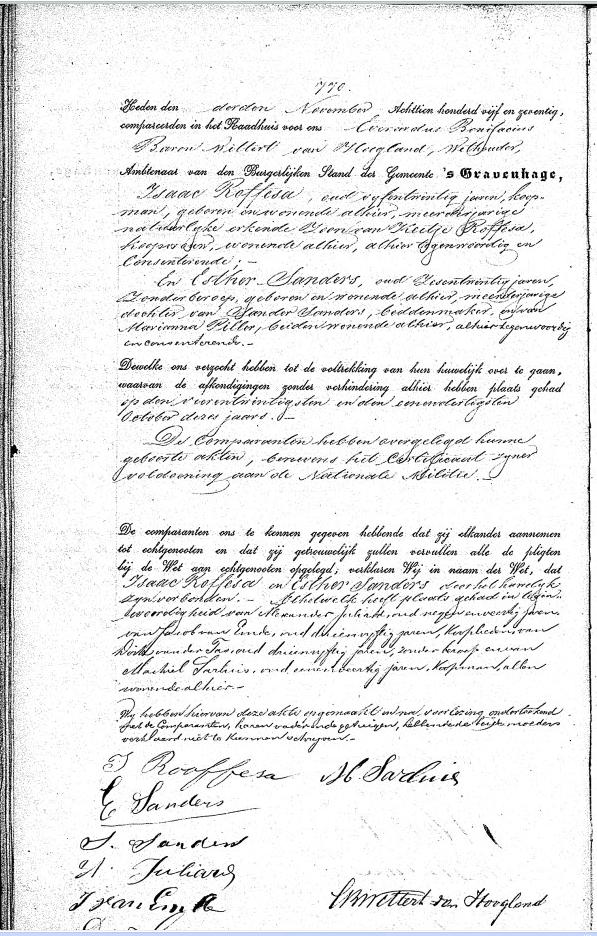 770.
Heden den derden November Achttien honderd vijf en zeventig,
compareerden in het Raadhuis voor ons Everardus Bonifacius
Baron Wittert van Hoogland, Wethouder,
Ambtenaar van den Burgerlijken Stand der Gemeente 's Gravenhage,
Isaac Roffesa, oud vyfentwintig jaren, koop-
man, geboren en wonende alhier, meerderjarige
natuurlyke erkende Zoon van Heeltje Roffesa,
koopvrouw, wonende alhier, alhier tegenwoordig en
Consenterende; -
En Esther Sanders, oud Zesentwintig jaren,
Zonder beroep, geboren en wonende alhier, meerderjarige
dochter van Sander Sanders, beddenmaker, en van
Marianna Pilter, beiden wonende alhier, alhier tegenwoordig
en consenterende. -
Dewelke ons verzocht hebben tot de voltrekking van hun huwelijk over te gaan,
waarvan de afkondigingen zonder verhindering alhier hebben plaats gehad
op den vierentwintigsten en den eenendertigsten
October dezes jaars. -
De Comparanten hebben overgelegd hunne
geboorte akten, benevens het Certificaat zyner
voldoening aan de Nationale Militie. -
De comparanten ons te kennen gegeven hebbende dat zij elkander aannemen
tot echtgenooten en dat zij getrouwelijk zullen vervullen alle de pligten
bij de Wet aan echtgenooten opgelegd; verklaren Wij in naam der Wet, dat
Isaac Roffesa en Esther Sanders door het huwelyk
zyn verbonden. - Al hetwelk heeft plaats gehad in tegen-
woordigheid van Alexander Juliard, oud negenenveertig jaren,
van Jacob van Emde, oud drieenvyftig jaren, Kooplieden, van
Dirk van der Tas, oud drieenvyftig jaren, zonder beroep en van
Machiel Sarluis, oud eenenveertig jaren, Koopman, allen
wonende alhier -
Wy hebben hiervan deze akte opgemaakt en na voorlezing onderteekend
met de Comparanten, haren vader en de getuigen, hebbende beide moeders
verklaard niet te kunnen schryven. -
I Rooffesa M Sarluis
E Sanders
S. Sanders
A. Juliard
J van Emde
EB Wittert van Hoogland